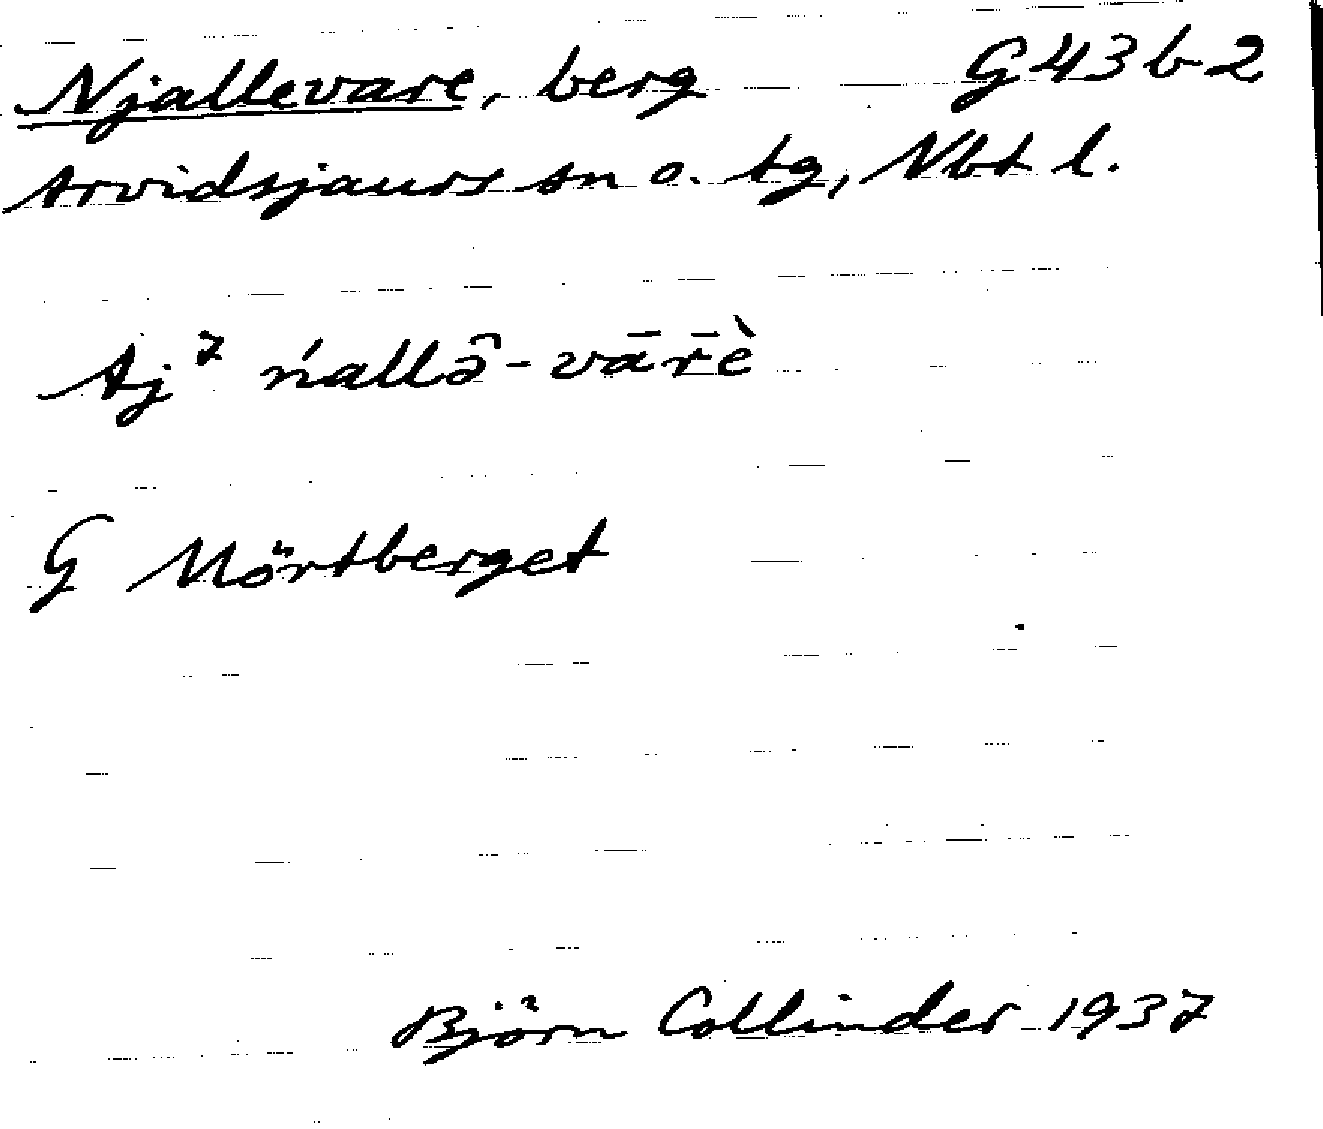 Njallevare, berg G43b2
Arvidsjaurs sn o. tg, Nbt l.
Aj⁷ ńallə̑-vār̄è
G Mörtberget
Björn Collinder 1937